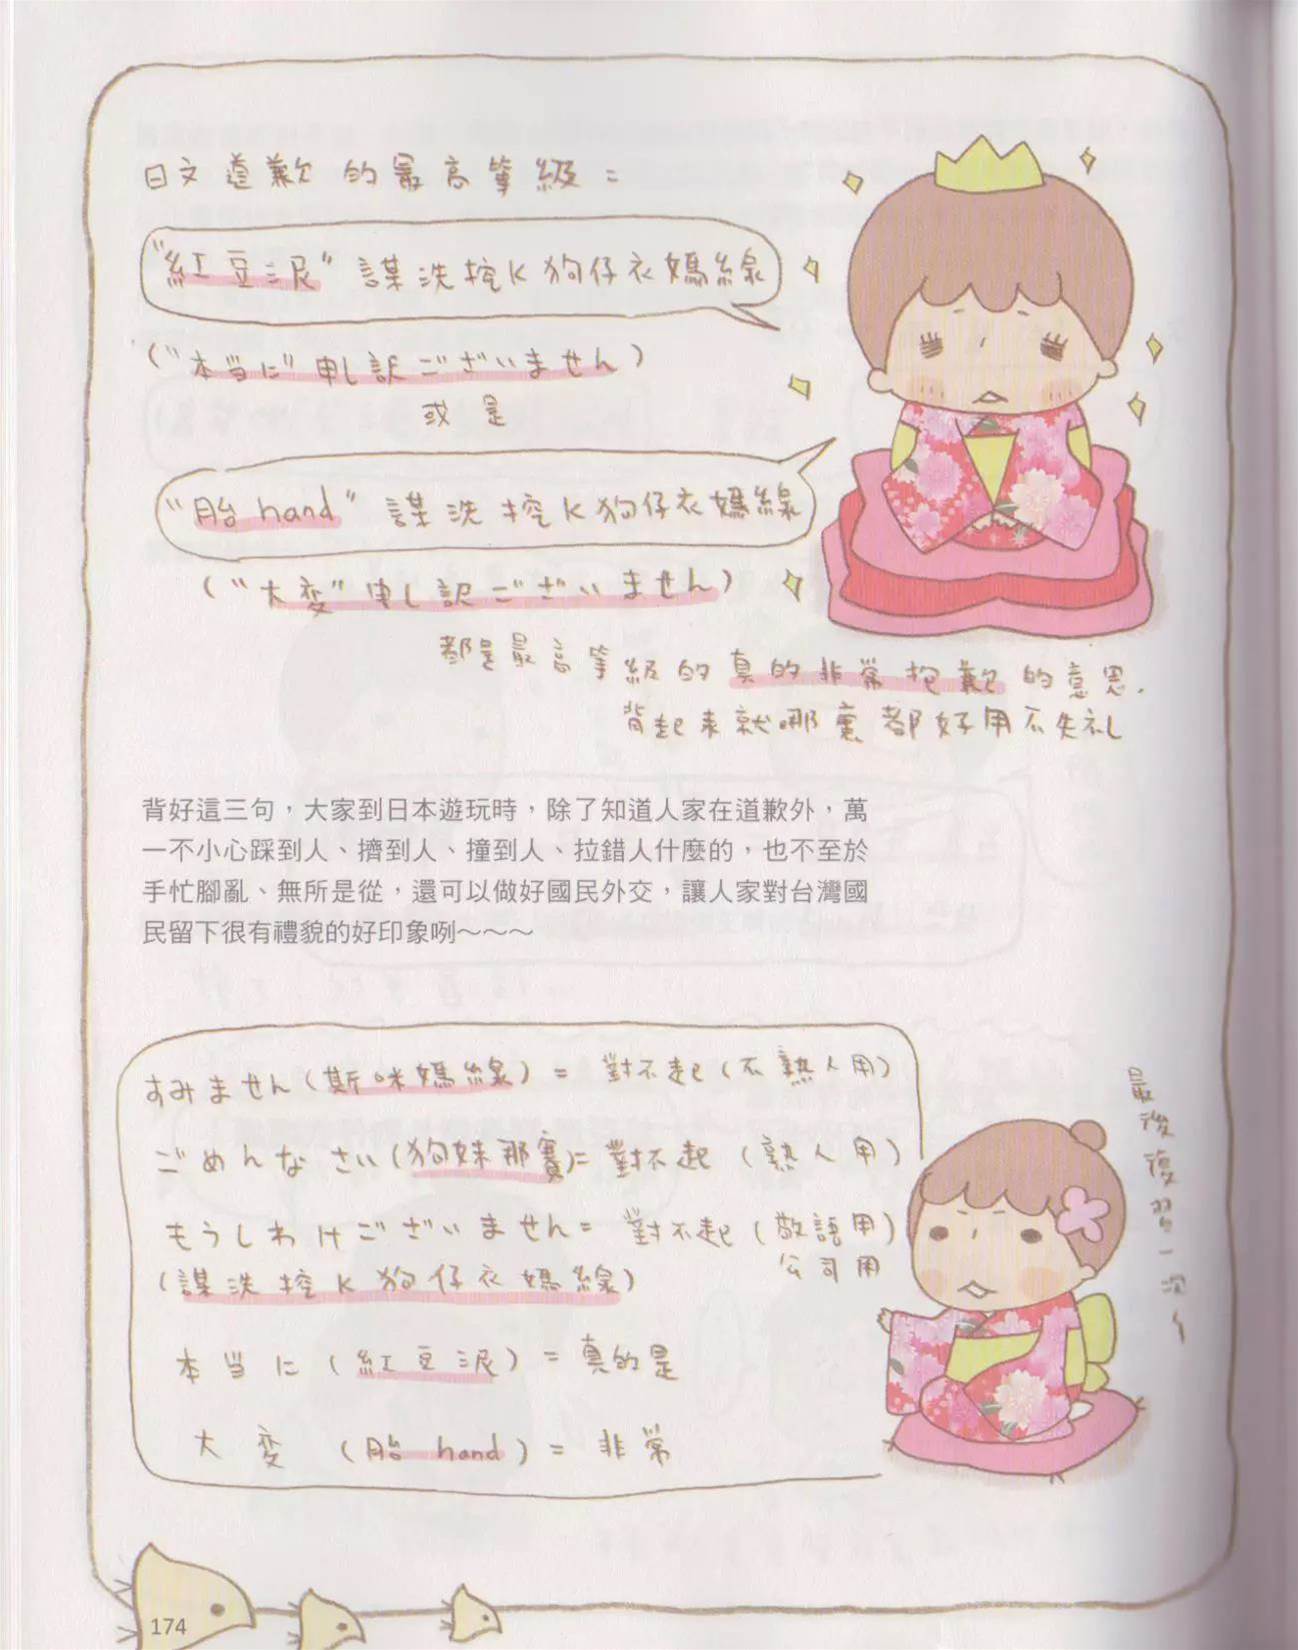 日文道歉的最高等級：
"紅豆泥"謀洗挖K狗仔衣媽線
("本当に"申し訳ございません)
或是
"胎hand"謀洗挖K狗仔衣媽線
("大変"申し訳ございません)
都是最高等級的真的非常抱歉的意思.
背起來就哪裏都好用不失礼
背好這三句，大家到日本遊玩時，除了知道人家在道歉外，萬
一不小心踩到人、擠到人、撞到人、拉錯人什麼的，也不至於
手忙腳亂、無所是從，還可以做好國民外交，讓人家對台灣國
民留下很有禮貌的好印象咧～～～
最後復習一次～
すみません(斯咪媽線)=對不起(不熟人用)
ごめんなさい(狗妹那賽)=對不起(熟人用)
もうしわけございません=對不起(敬語用)
公司用
(謀洗挖K狗仔衣媽線)
本当に(紅豆泥)=真的是
大変(胎hand)=非常
174